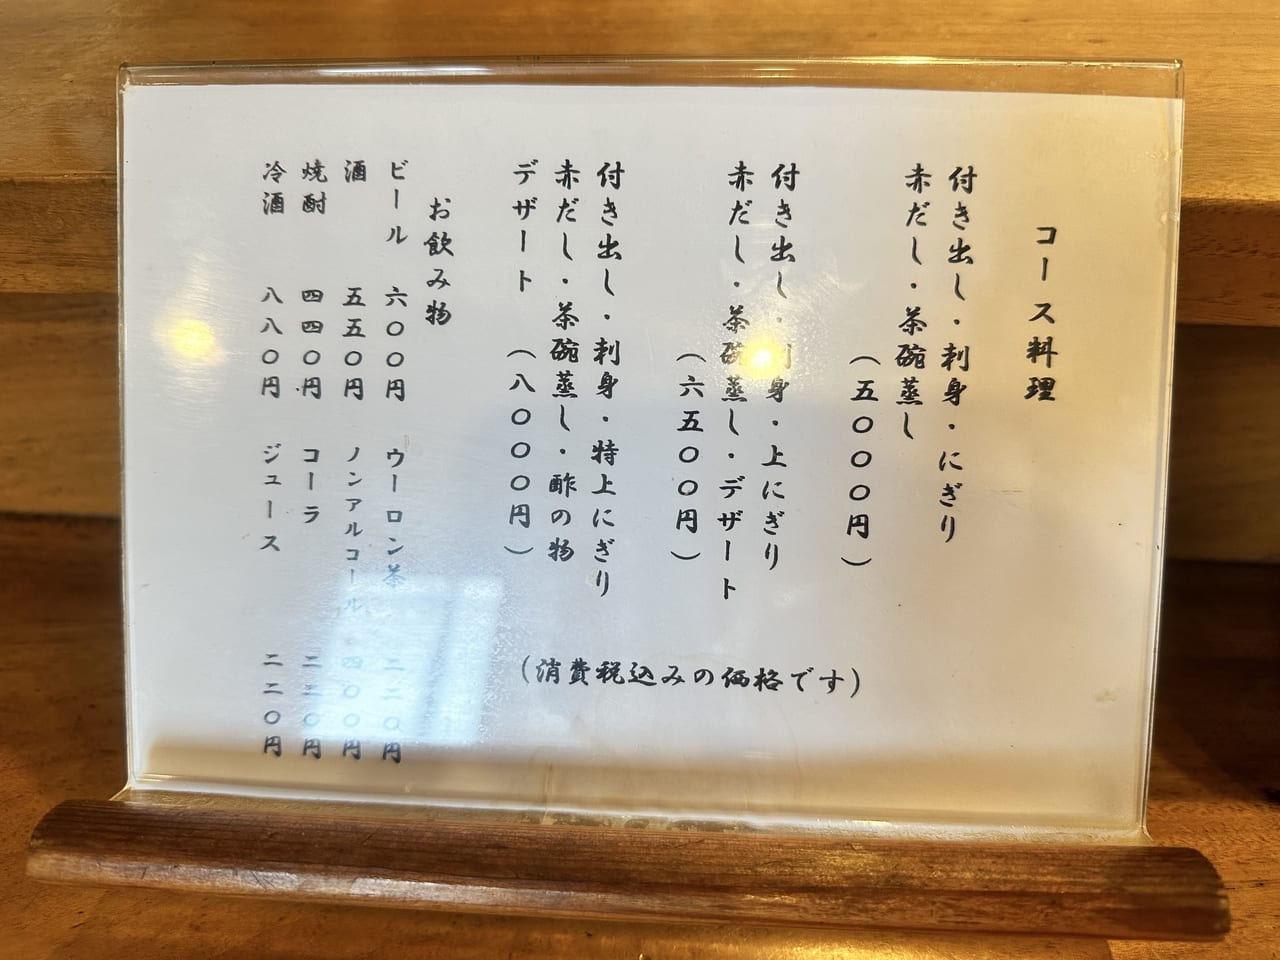 コース料理
付き出し・刺身・にぎり
赤だし・茶碗蒸し
（五〇〇〇円）
付き出し・刺身・上にぎり
赤だし・茶碗蒸し・デザート
（六五〇〇円）
付き出し・刺身・特上にぎり
赤だし・茶碗蒸し・酢の物
デザート （八〇〇〇円）
（消費税込みの価格です）
お飲み物
ビール 六〇〇円 ウーロン茶 二二〇円
酒 五五〇円 ノンアルコール 四〇〇円
焼酎 四四〇円 コーラ 二二〇円
冷酒 八八〇円 ジュース 二二〇円